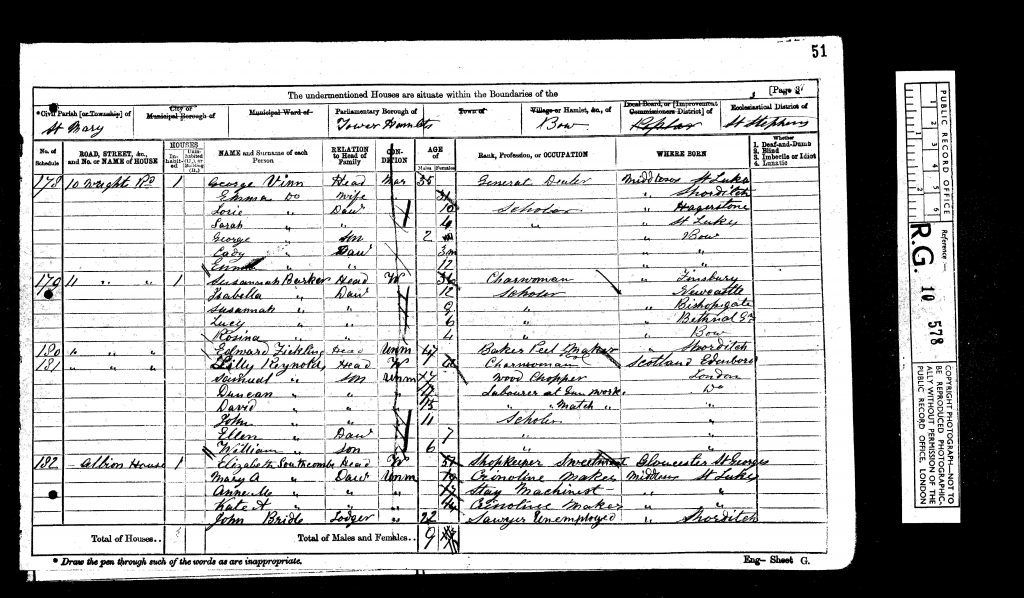 51
The undermentioned Houses are situate within the Boundaries of the [Page 3
Civil Parish [or Township] of City or Municipal Borough of Municipal Ward of Parliamentary Borough of Town of Village or Hamlet, &c., of Local Board, or [Improvement Commissioners District] of Ecclesiastical District of
St Mary Tower Hamlets Bow Poplar St Stephens
No. of Schedule ROAD, STREET, &c., and No. or NAME of HOUSE HOUSES Inhabited Uninhabited (U.), or Building (B.) NAME and Surname of each Person RELATION to Head of Family CONDITION AGE of Males Females Rank, Profession, or OCCUPATION WHERE BORN Whether 1. Deaf-and-Dumb 2. Blind 3. Imbecile or Idiot 4. Lunatic
178 10 Wright Rd 1 George Vinn Head Mar 35 General Dealer Middlesex St Lukes
Emma Do Wife " Shorditch
Daur 10 Scholar " Hagerstone
Sarah " " 4 " " St Lukes
George " Son 2 " Bow
" Daur 3m " "
Emma " " 12 " "
179 11 " " 1 Susannah Barker Head W Charwoman " Finsbury
Isabella " Daur 12 Scholar Newcastle
Susannah " " 9 " " Bishopsgate
Lucy " " 6 " " Bethnal Gn
Rosina " " 4 " " Bow
180 " " " Edward Fickling Head Unm 47 Baker Peel Maker " Shorditch
181 " " " Reynolds Head W Charwoman Scotland Edenboro
Samuel " Son Unm Wood Chopper London
Duncan " " 17 Labourer at Gun work Do
David " " 15 " " Match " "
John " " 11 Scholar "
Ellen " Daur 7 " "
William " Son 6 " "
182 Albion House 1 Elizabeth Southcombe Head W Shopkeeper Sweetmeat Gloucester St Georges
Mary A " Daur Unm 19 Crinoline Maker Middlesex St Lukes
Annie M " " " 17 Stay Machinist " "
Kate A " " " 14 Crinoline Maker " "
John Bridle Lodger " 22 Sawyer Unemployed " Shorditch
Total of Houses.. 3 Total of Males and Females.. 9
* Draw the pen through such of the words as are inappropriate. Eng— Sheet G.
PUBLIC RECORD OFFICE
Reference :—
R.G. 10 578
COPYRIGHT PHOTOGRAPH—NOT TO BE REPRODUCED PHOTOGRAPHICALLY WITHOUT PERMISSION OF THE PUBLIC RECORD OFFICE, LONDON